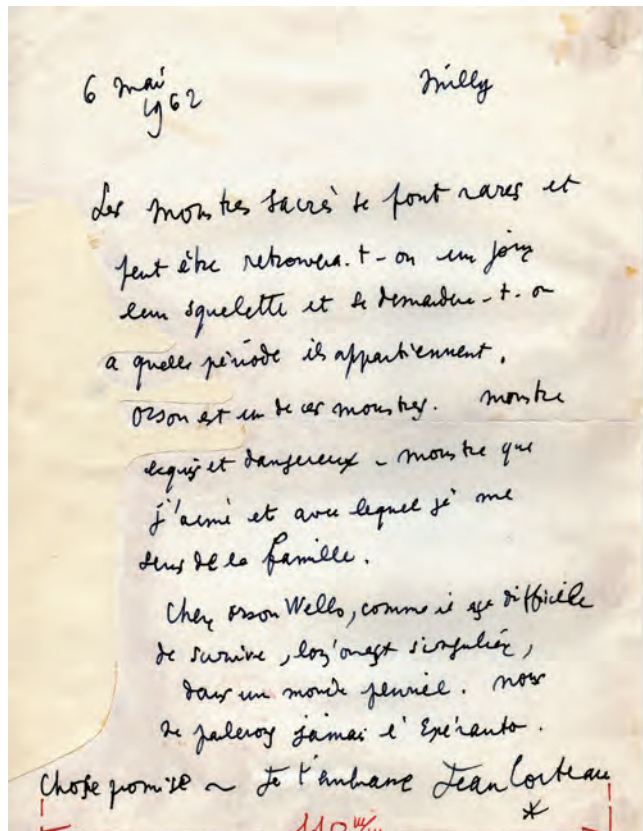 6 mai
1962
Milly
Les monstres sacrés se font rares et
peut être retrouvera-t-on un jour
leur squelette et se demandera-t-on
a quelle période ils appartiennent.
Orson est un de ces monstres. Monstre
exquis et dangereux ~ monstre que
j'aime et avec lequel je me
sens de la famille.
Cher Orson Welles, comme il est difficile
de survivre, lorsqu'on est singulier,
dans un monde pluriel. Nous
ne parlerons jamais l'Espéranto.
Chose promise ~ Je t'embrasse Jean Cocteau
*
110 m/m